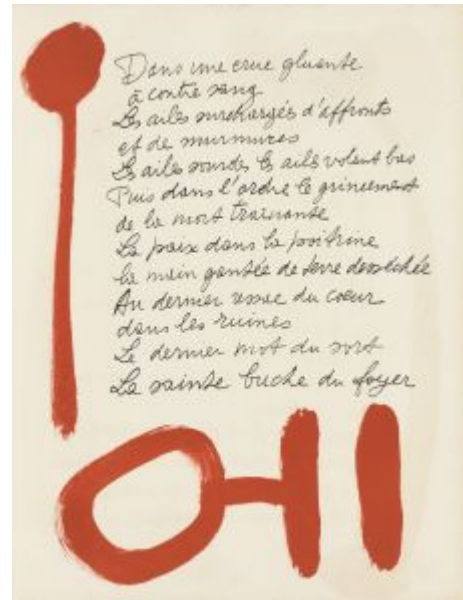 Dans une crue gluante
à contre sang
Les ailes surchargés d'affronts
et de murmures
Les ailes sourdes les ailes volent bas
Puis dans l'ordre le grincement
de la mort trainante
La paix dans la poitrine
la main gantée de terre desséchée
Au dernier ressac du cœur
dans les ruines
Le dernier mot du sort
La sainte buche du foyer